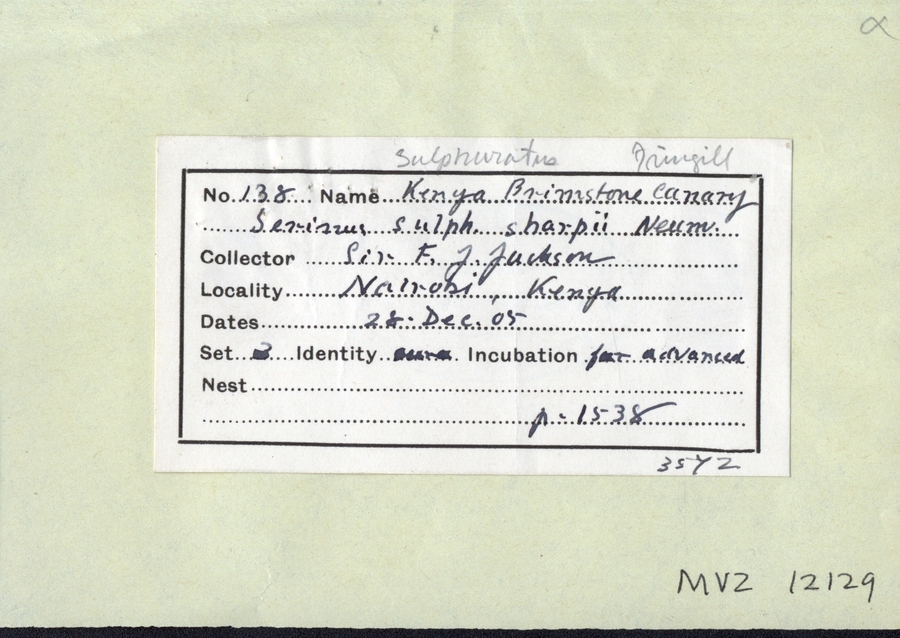 α
Sulphuratus Fringill
No. 138 Name Kenya Brimstone Canary
Serinus sulph. sharpii Neum.
Collector Sir. F. J. Jackson
Locality Nairobi, Kenya
Dates 28. Dec. 05
Set 3 Identity sure Incubation far advanced
Nest
p. 1538
MVZ 12129